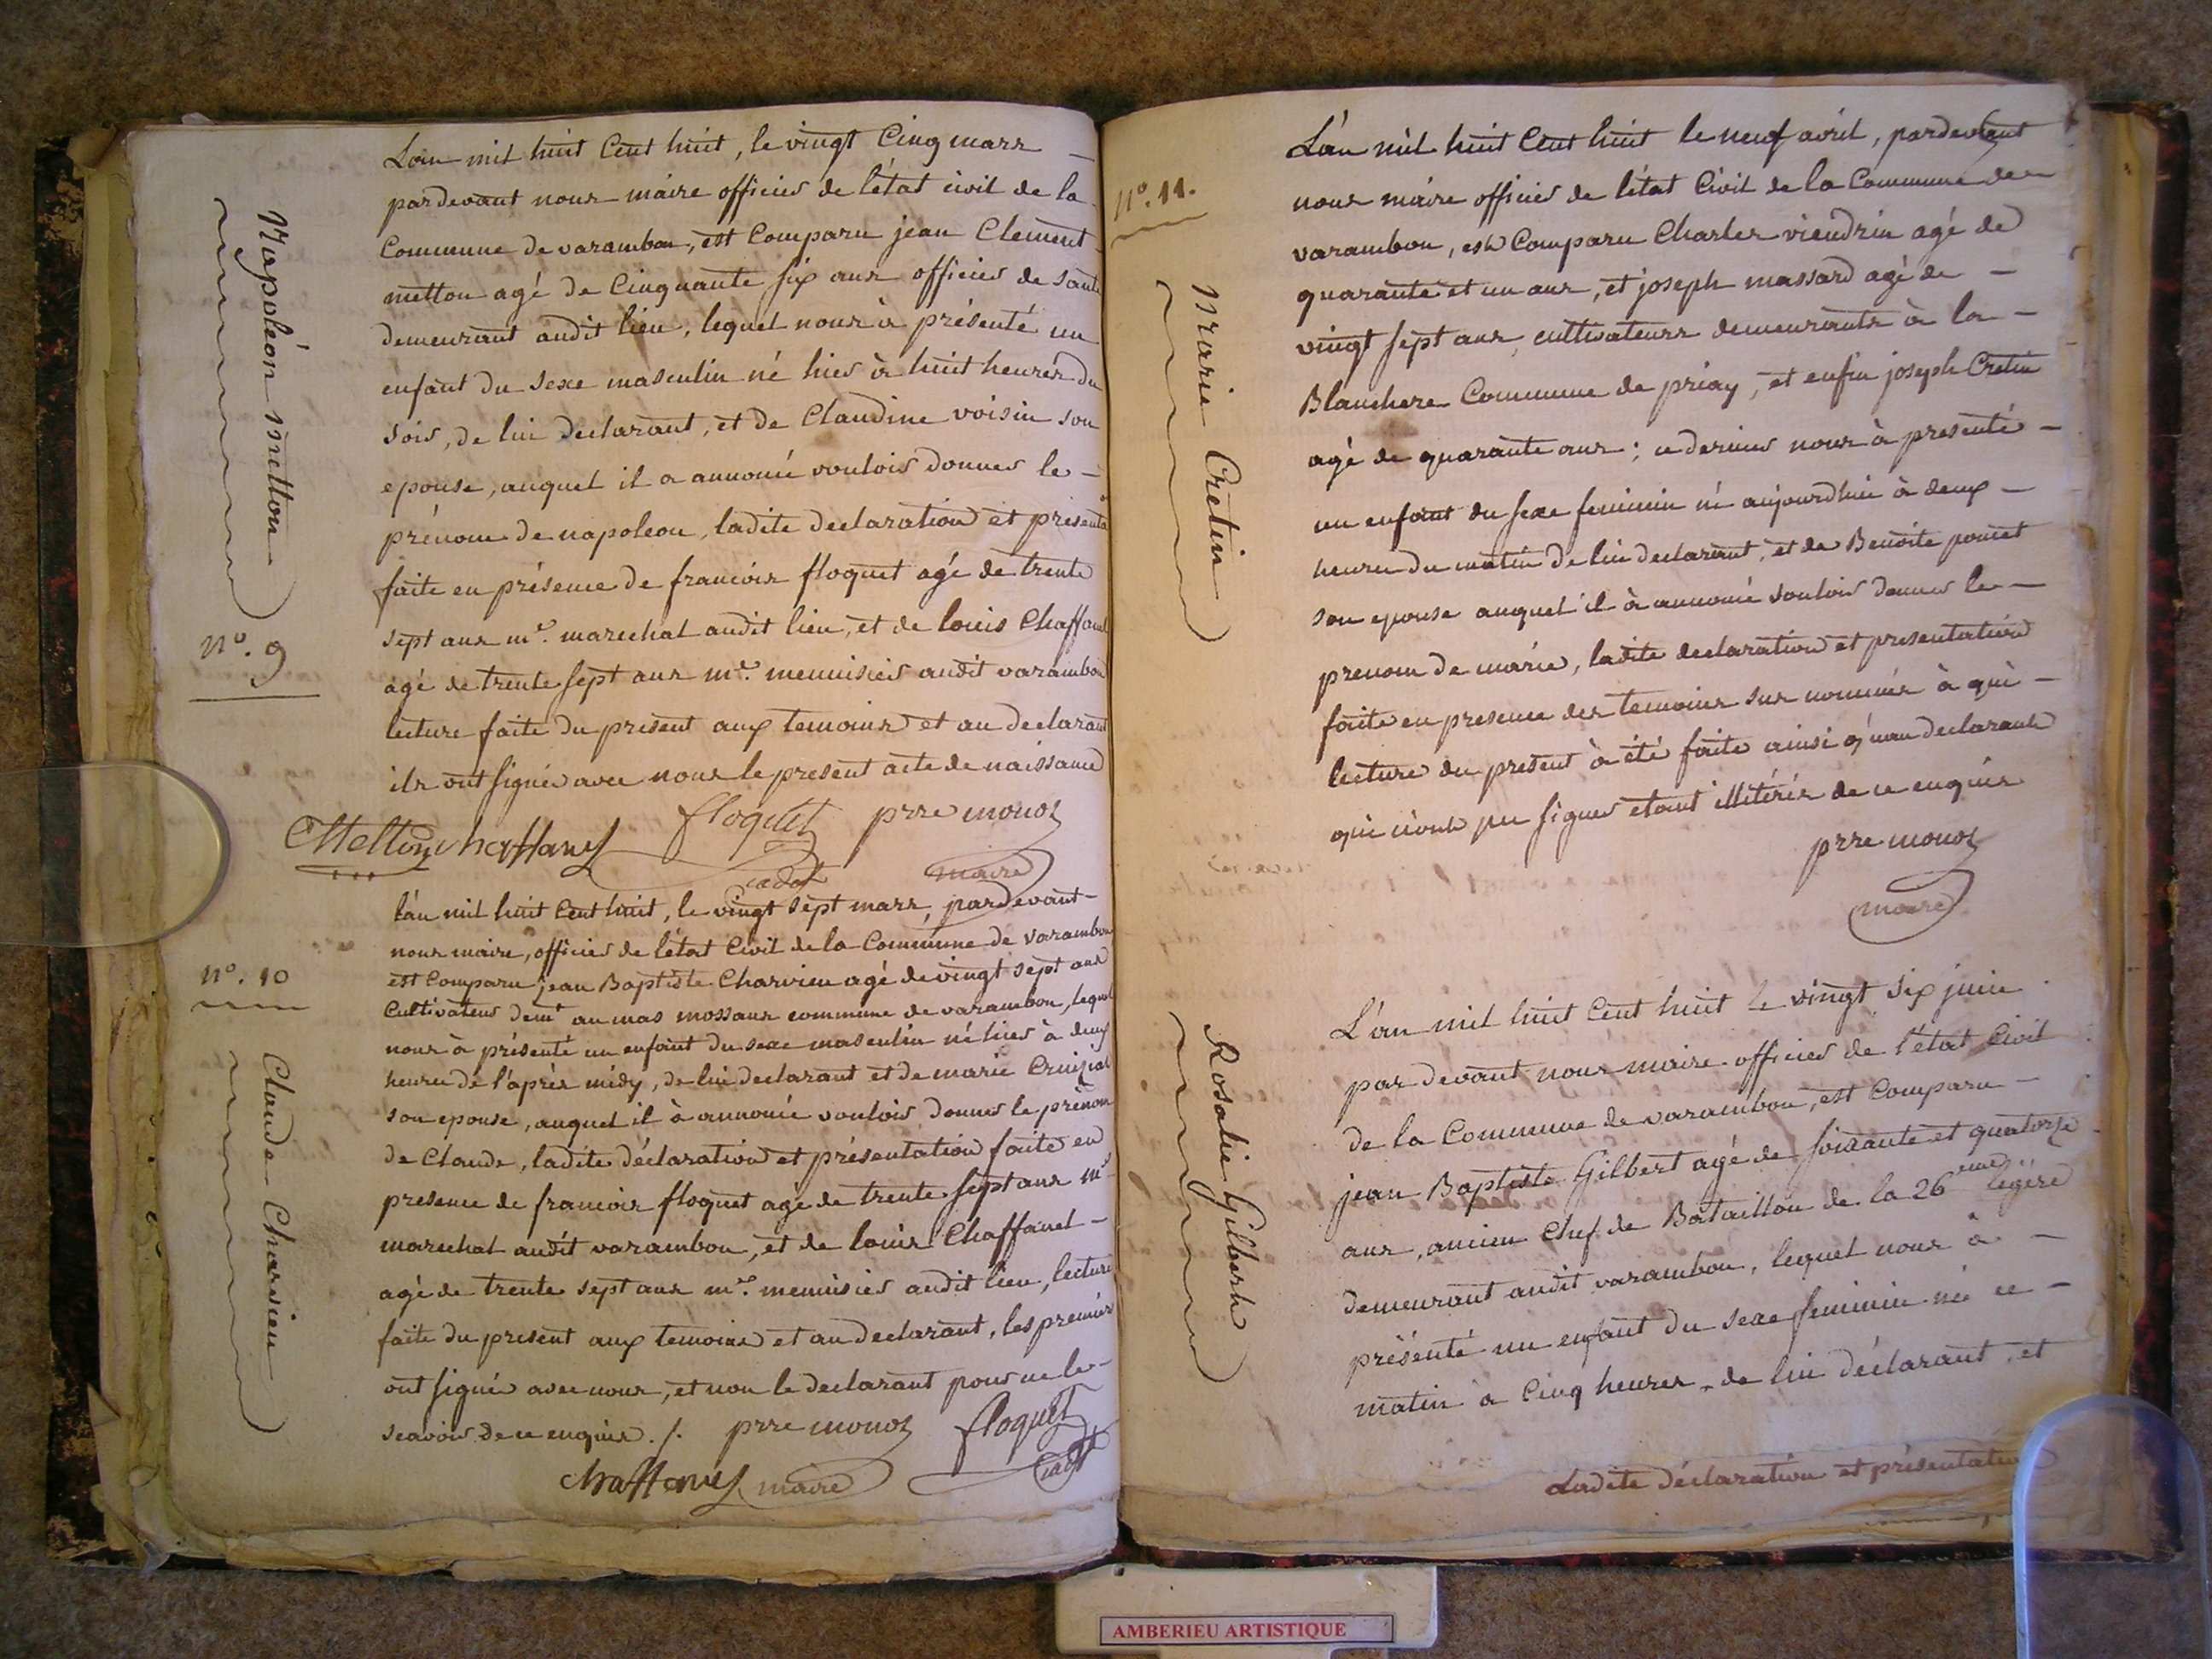 L'an mil huit Cent huit, le vingt Cinq mars —
pardevant nous maire officier de l'état civil de la
Commune de varambon, est Comparu jean Clement
metton agé de Cinquante six ans officier de santé
demeurant audit lieu, lequel nous à présenté un
enfant du sexe masculin né hier à huit heures du
soir, de lui declarant, et de Claudine voisin son
epouse, auquel il a annoncé vouloir donner le —
prénom de napoleon, ladite declaration et présenta
faite en présence de francois floquet agé de trente
sept ans me. marechal audit lieu, et de louis Chaffanel
agé de trente sept ans me. menuisier audit varambon
lecture faite du present aux temoins et au declarant
ils ont signé avec nous le present acte de naissance
Napoléon Metton
n°. 9
CMetton chaffanel floquet prre monoz
cadet maire
l'an mil huit Cent huit, le vingt sept mars, pardevant —
nous maire, officier de l'état Civil de la Commune de varambon
est Comparu jean Baptiste Charvieu agé de vingt sept ans
Cultivateur demt au mas mossaur commune de varambon, lequel
nous à présenté un enfant du sexe masculin né hier à deux
heures de l'après midy, de lui declarant et de marie Cruiziat
son epouse, auquel il à annoncé vouloir donner le prénom
de Claude, ladite déclaration et présentation faite en
presence de francois floquet agé de trente sept ans me
marechal audit varambon, et de louis Chaffanel —
agé de trente sept ans me. menuisier audit lieu, lecture
faite du present aux temoins et au declarant, les premiers
ont signé avec nous, et non le declarant pour ne le —
scavoir de ce enquis ./. prre monoz floquet
chaffanel maire cadet
n°. 10
Claude Charvieu
n°. 11.
Marie Cretin
L'an mil huit Cent huit le neuf avril, pardevant
nous maire officier de l'état Civil de la Commune de
varambon, est Comparu Charles viendrin agé de
quarante et un ans, et joseph massard agé de —
vingt sept ans, cultivateurs demeurants à la —
Blanchere Commune de priay, et enfin joseph Cretin
agé de quarante ans; ce dernier nous à presenté —
un enfant du sexe feminin né aujourdhui à deux —
heures du matin de lui declarant, et de Benoite poncet
son epouse auquel il à annoncé vouloir donner le —
prenom de marie, ladite declaration et presentation
faite en presence des temoins sus nommés à qui —
lecture du present à été faite ainsi q'uau declarant
qui n'ont pu signer etant illitérés de ce enquis
prre monoz
maire
Rosalie Gilbert
L'an mil huit Cent huit le vingt six juin
par devant nous maire officier de l'état Civil
de la Commune de varambon, est Comparu —
jean Baptiste Gilbert agé de soixante et quatorze
ans, ancien Chef de Bataillon de la 26eme légère
demeurant audit varambon, lequel nous à —
présenté un enfant du sexe feminin né ce —
matin à Cinq heures, de lui déclarant, et
Ladite déclaration et présentation
AMBERIEU ARTISTIQUE